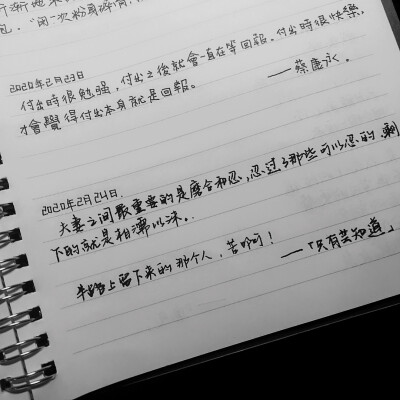 2020年2月23日
付出時很勉强,付出之後就會一直在等回報。付出時很快樂,
才會覺得付出本身就是回報。 ——蔡康永。
2020年2月24日.
夫妻之间最重要的是磨合和忍,忍过了那些可以忍的,剩
下的就是相濡以沫.
半路上留下来的那个人,苦啊!
——「只有芸知道」